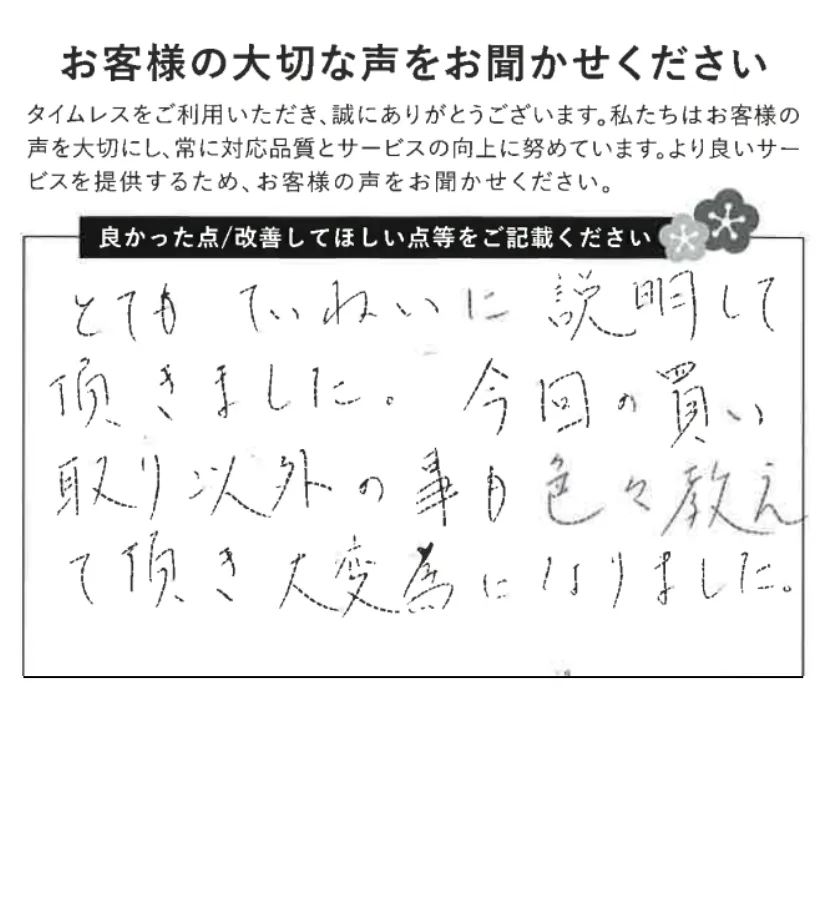 お客様の大切な声をお聞かせください
タイムレスをご利用いただき、誠にありがとうございます。私たちはお客様の
声を大切にし、常に対応品質とサービスの向上に努めています。より良いサー
ビスを提供するため、お客様の声をお聞かせください。
良かった点/改善してほしい点等をご記載ください
とても ていねいに 説明して
頂きました。 今回の買い
取り以外の事も色々教え
て頂き大変為になりました。